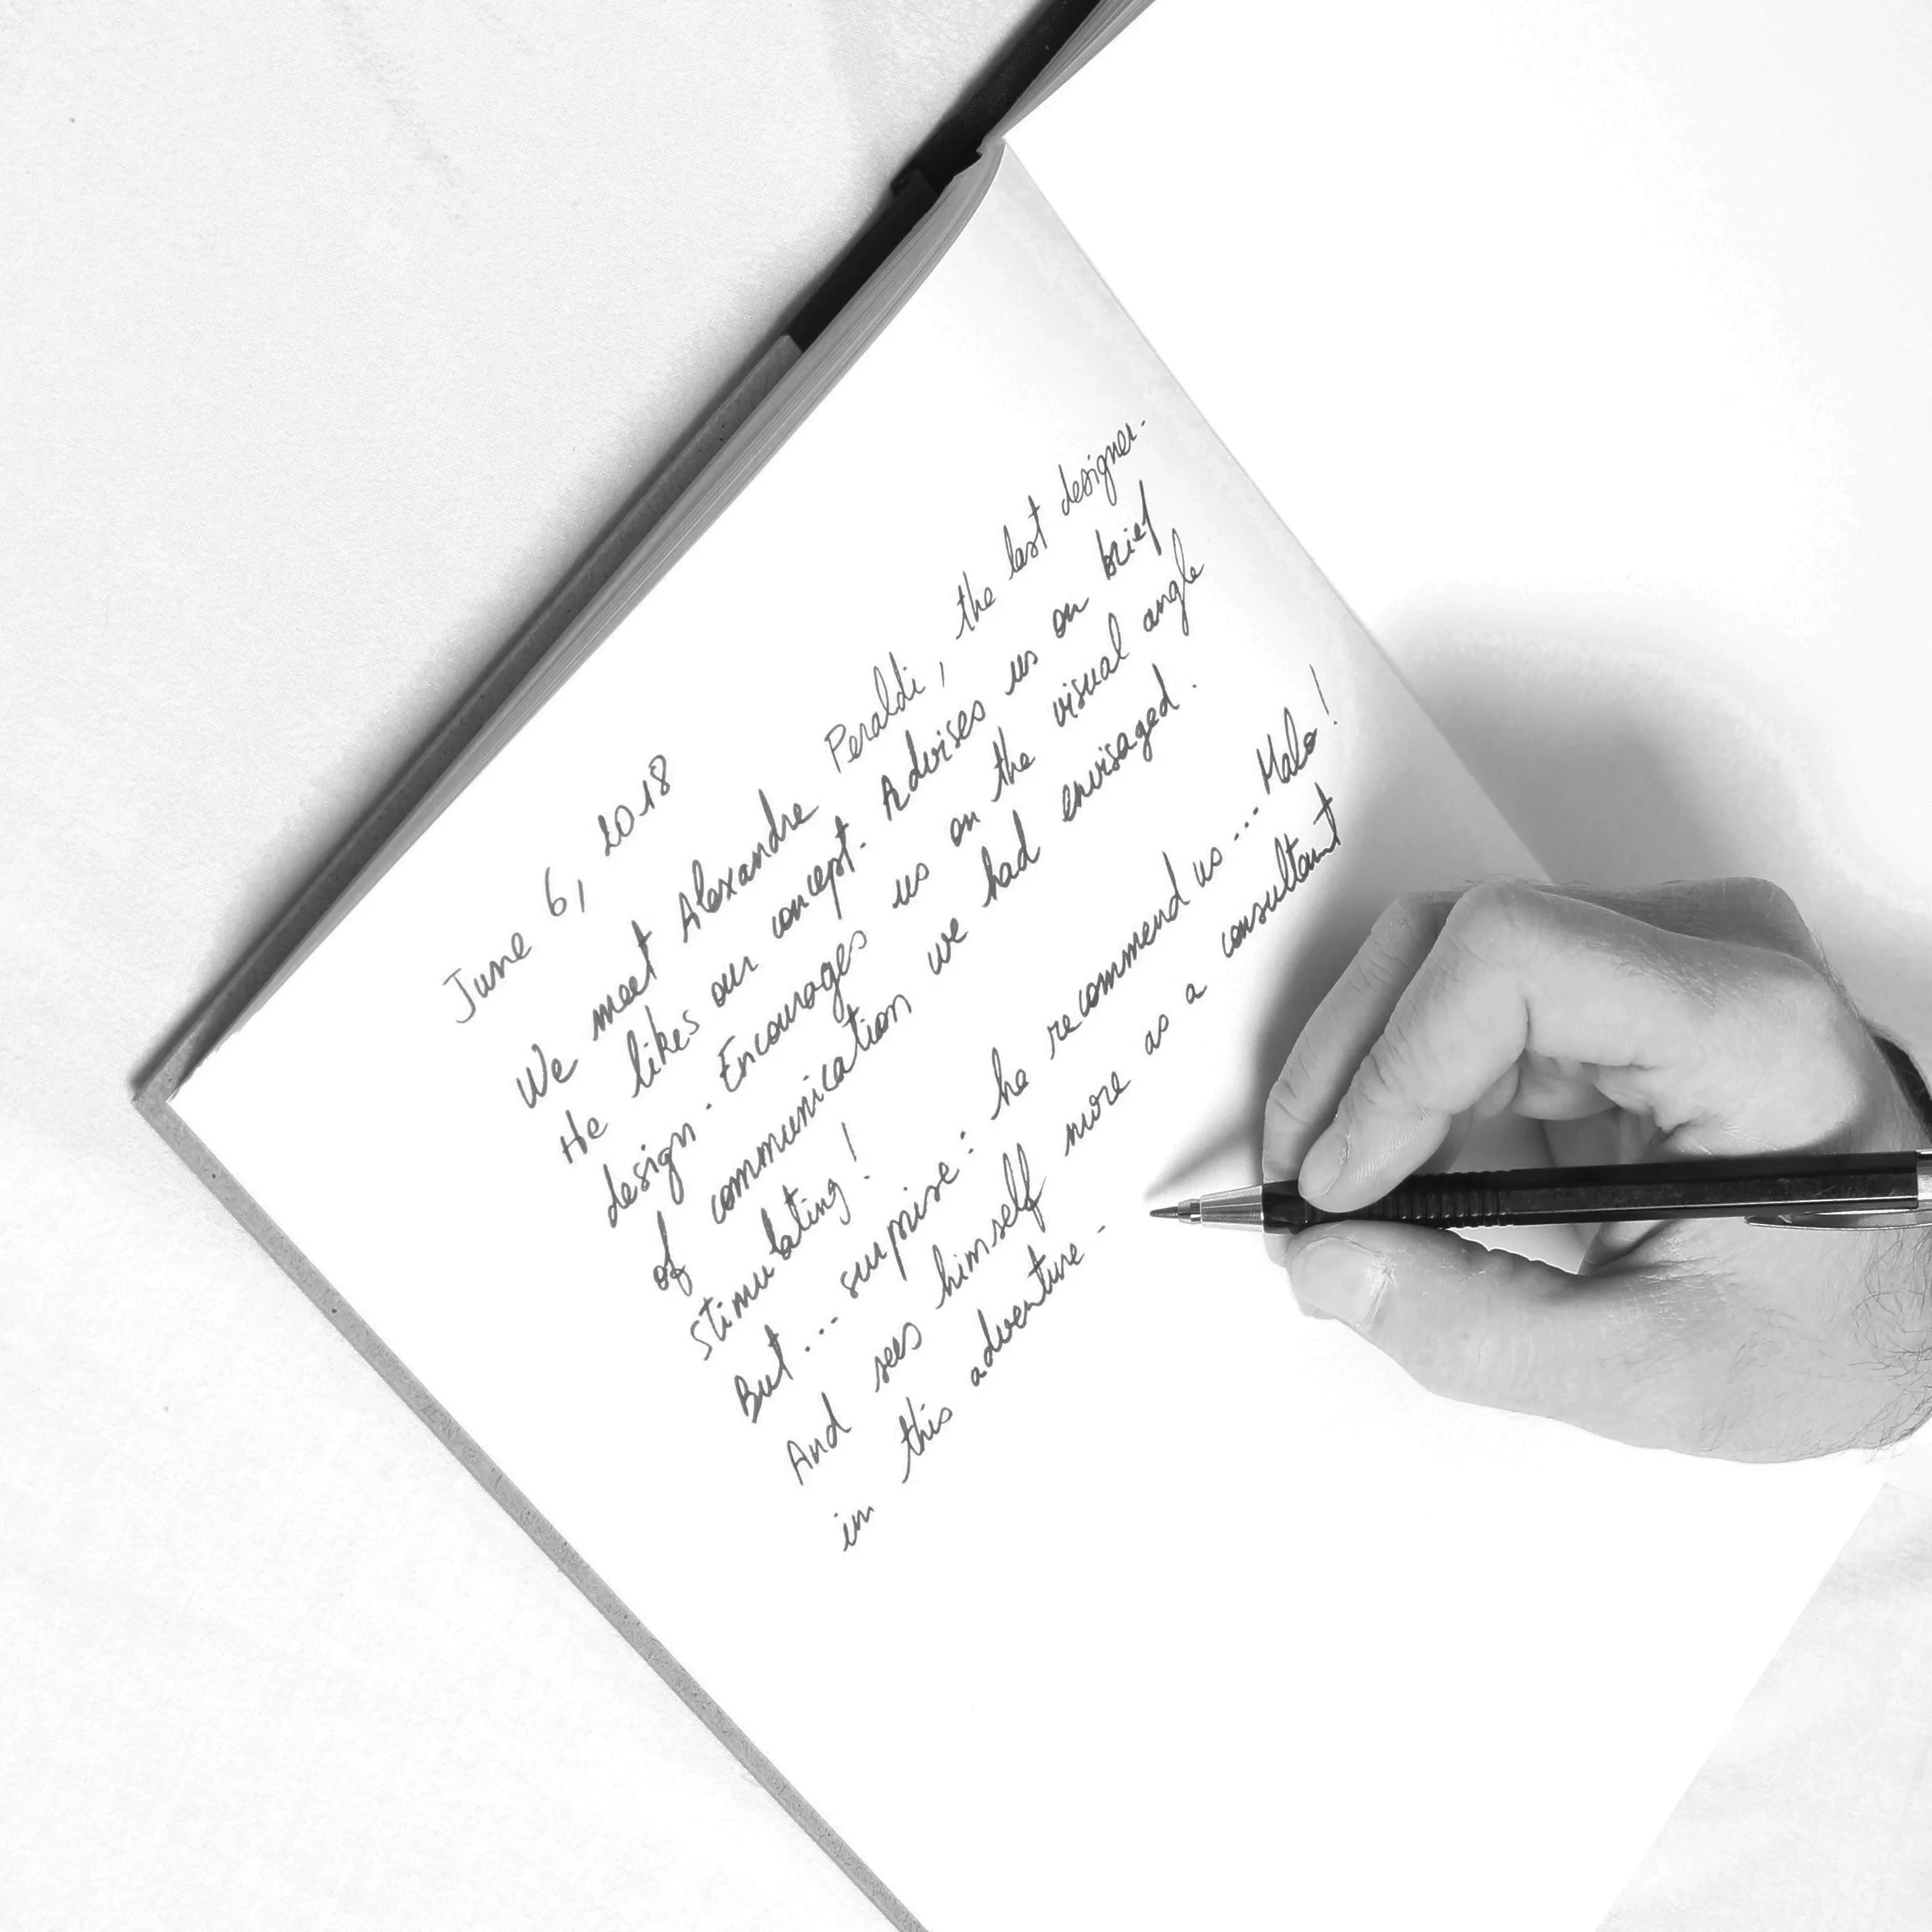 June 6, 2018
We meet Alexandre Peraldi, the last designer.
He likes our concept. Advises us on brief
design. Encourages us on the visual angle
of communication we had envisaged.
stimulating!
But... surprise: he recommend us... Malo!
And sees himself more as a consultant
in this adventure.